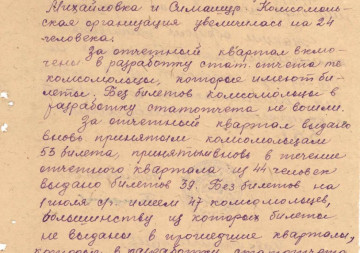 Михайловка и Симашур. Комсомоль-
ская организация увеличилась на 24
человека.
За отчетный квартал вклю-
чены в разработку стат. отчета те
комсомольцы, которые имеют би-
леты. Без билетов комсомольцы в
разработку статотчета не вошли.
За отчетный квартал выдано
вновь принятым комсомольцам
53 билета, принятых вновь в течение
отчетного квартала из 44 человек
выдано билетов 39. Без билетов на
1 июля с/г имеем 47 комсомольцев,
большинству из которых билеты
не выданы в прошедшие кварталы,
в разработку статотчета